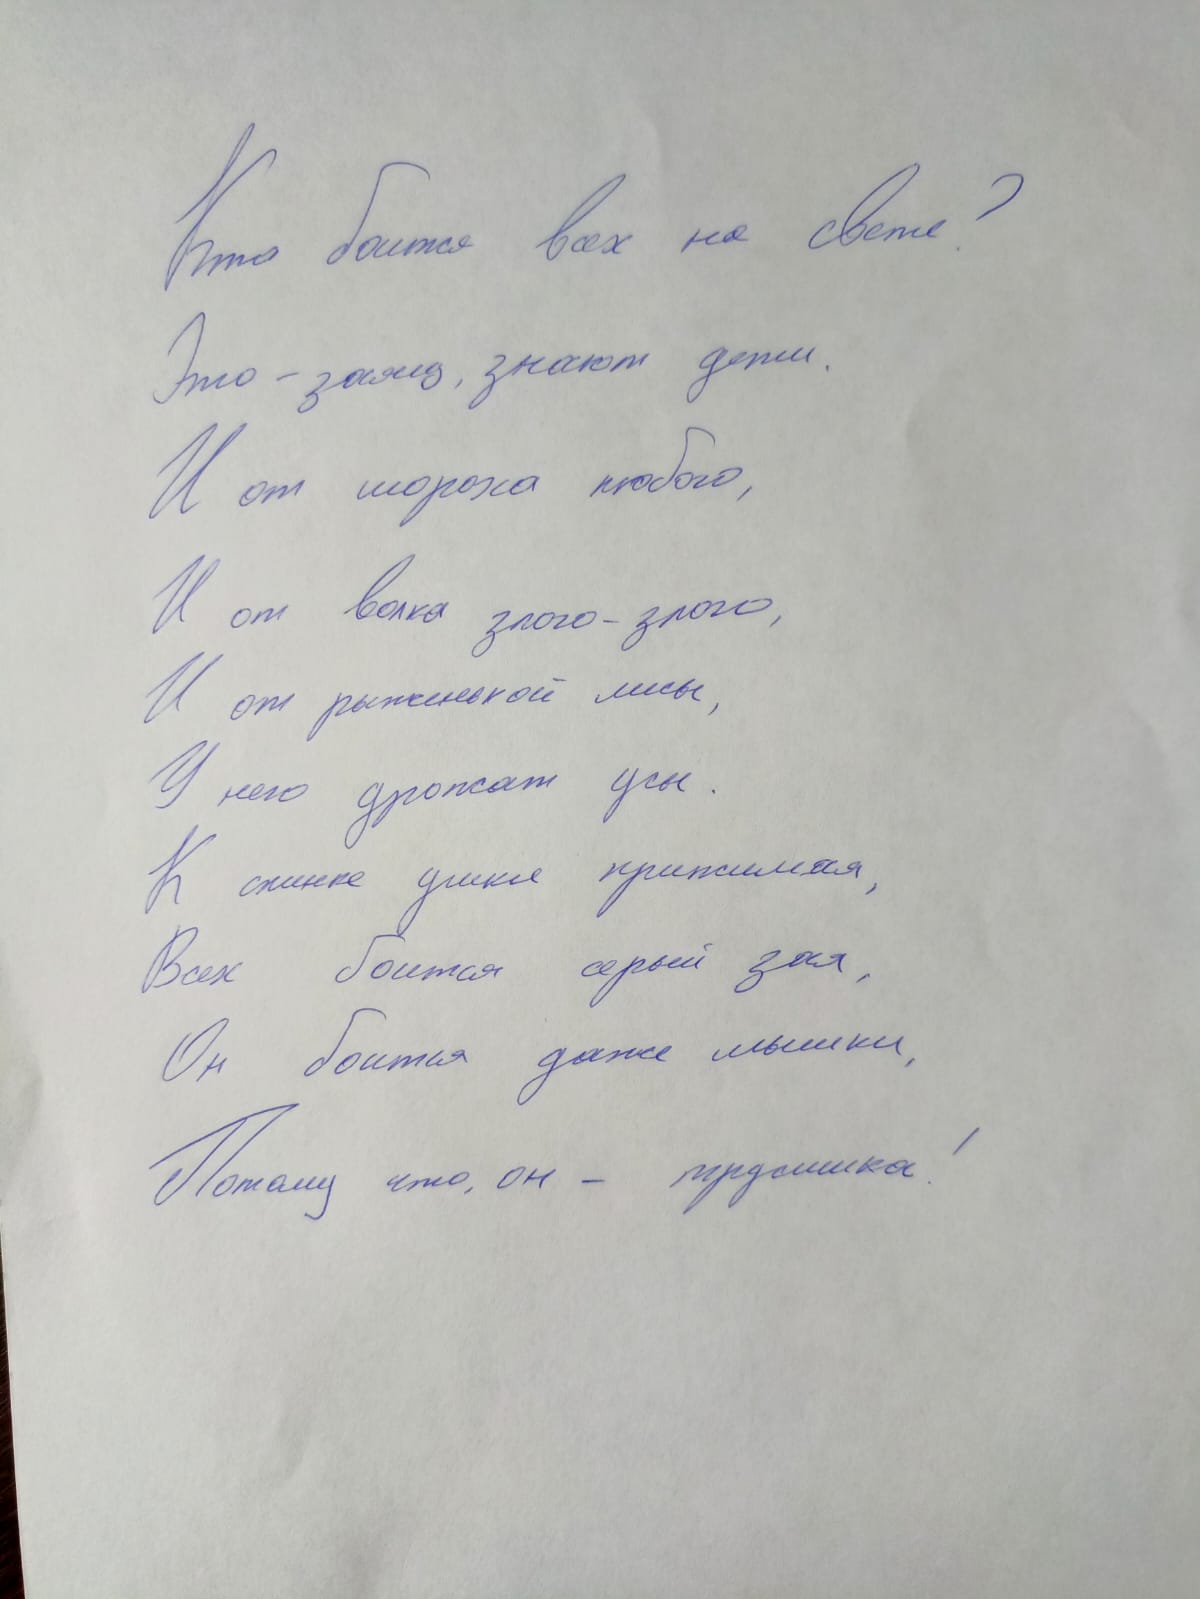 Кто боится всех на свете?
Это - заяц, знают дети.
И от шороха любого,
И от волка злого-злого,
И от рыженькой лисы,
У него дрожат усы.
К спинке ушки прижимая,
Всех боится серый зая,
Он боится даже мышки,
Потому что, он - трусишка!